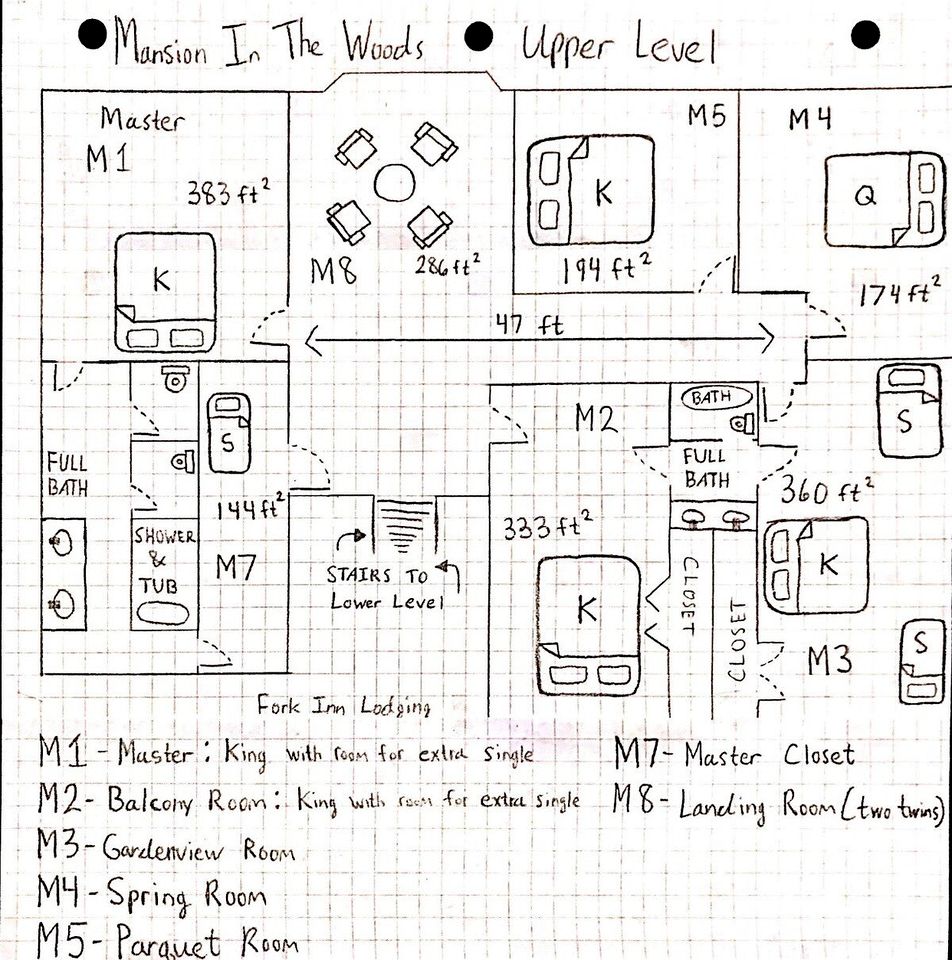 Mansion In The Woods Upper Level
Master
M1
383 ft²
K
M8
286 ft²
M5
K
194 ft²
M4
Q
174 ft²
47 ft
S
144 ft²
M7
FULL
BATH
SHOWER
&
TUB
STAIRS TO
Lower Level
M2
333 ft²
K
BATH
FULL
BATH
CLOSET
CLOSET
S
360 ft²
K
M3
S
Fork Inn Lodging
M1 - Master: King with room for extra single
M2- Balcony Room: King with room for extra single
M3-Gardenview Room
M4-Spring Room
M5-Parquet Room
M7-Master Closet
M8-Landing Room (two twins)